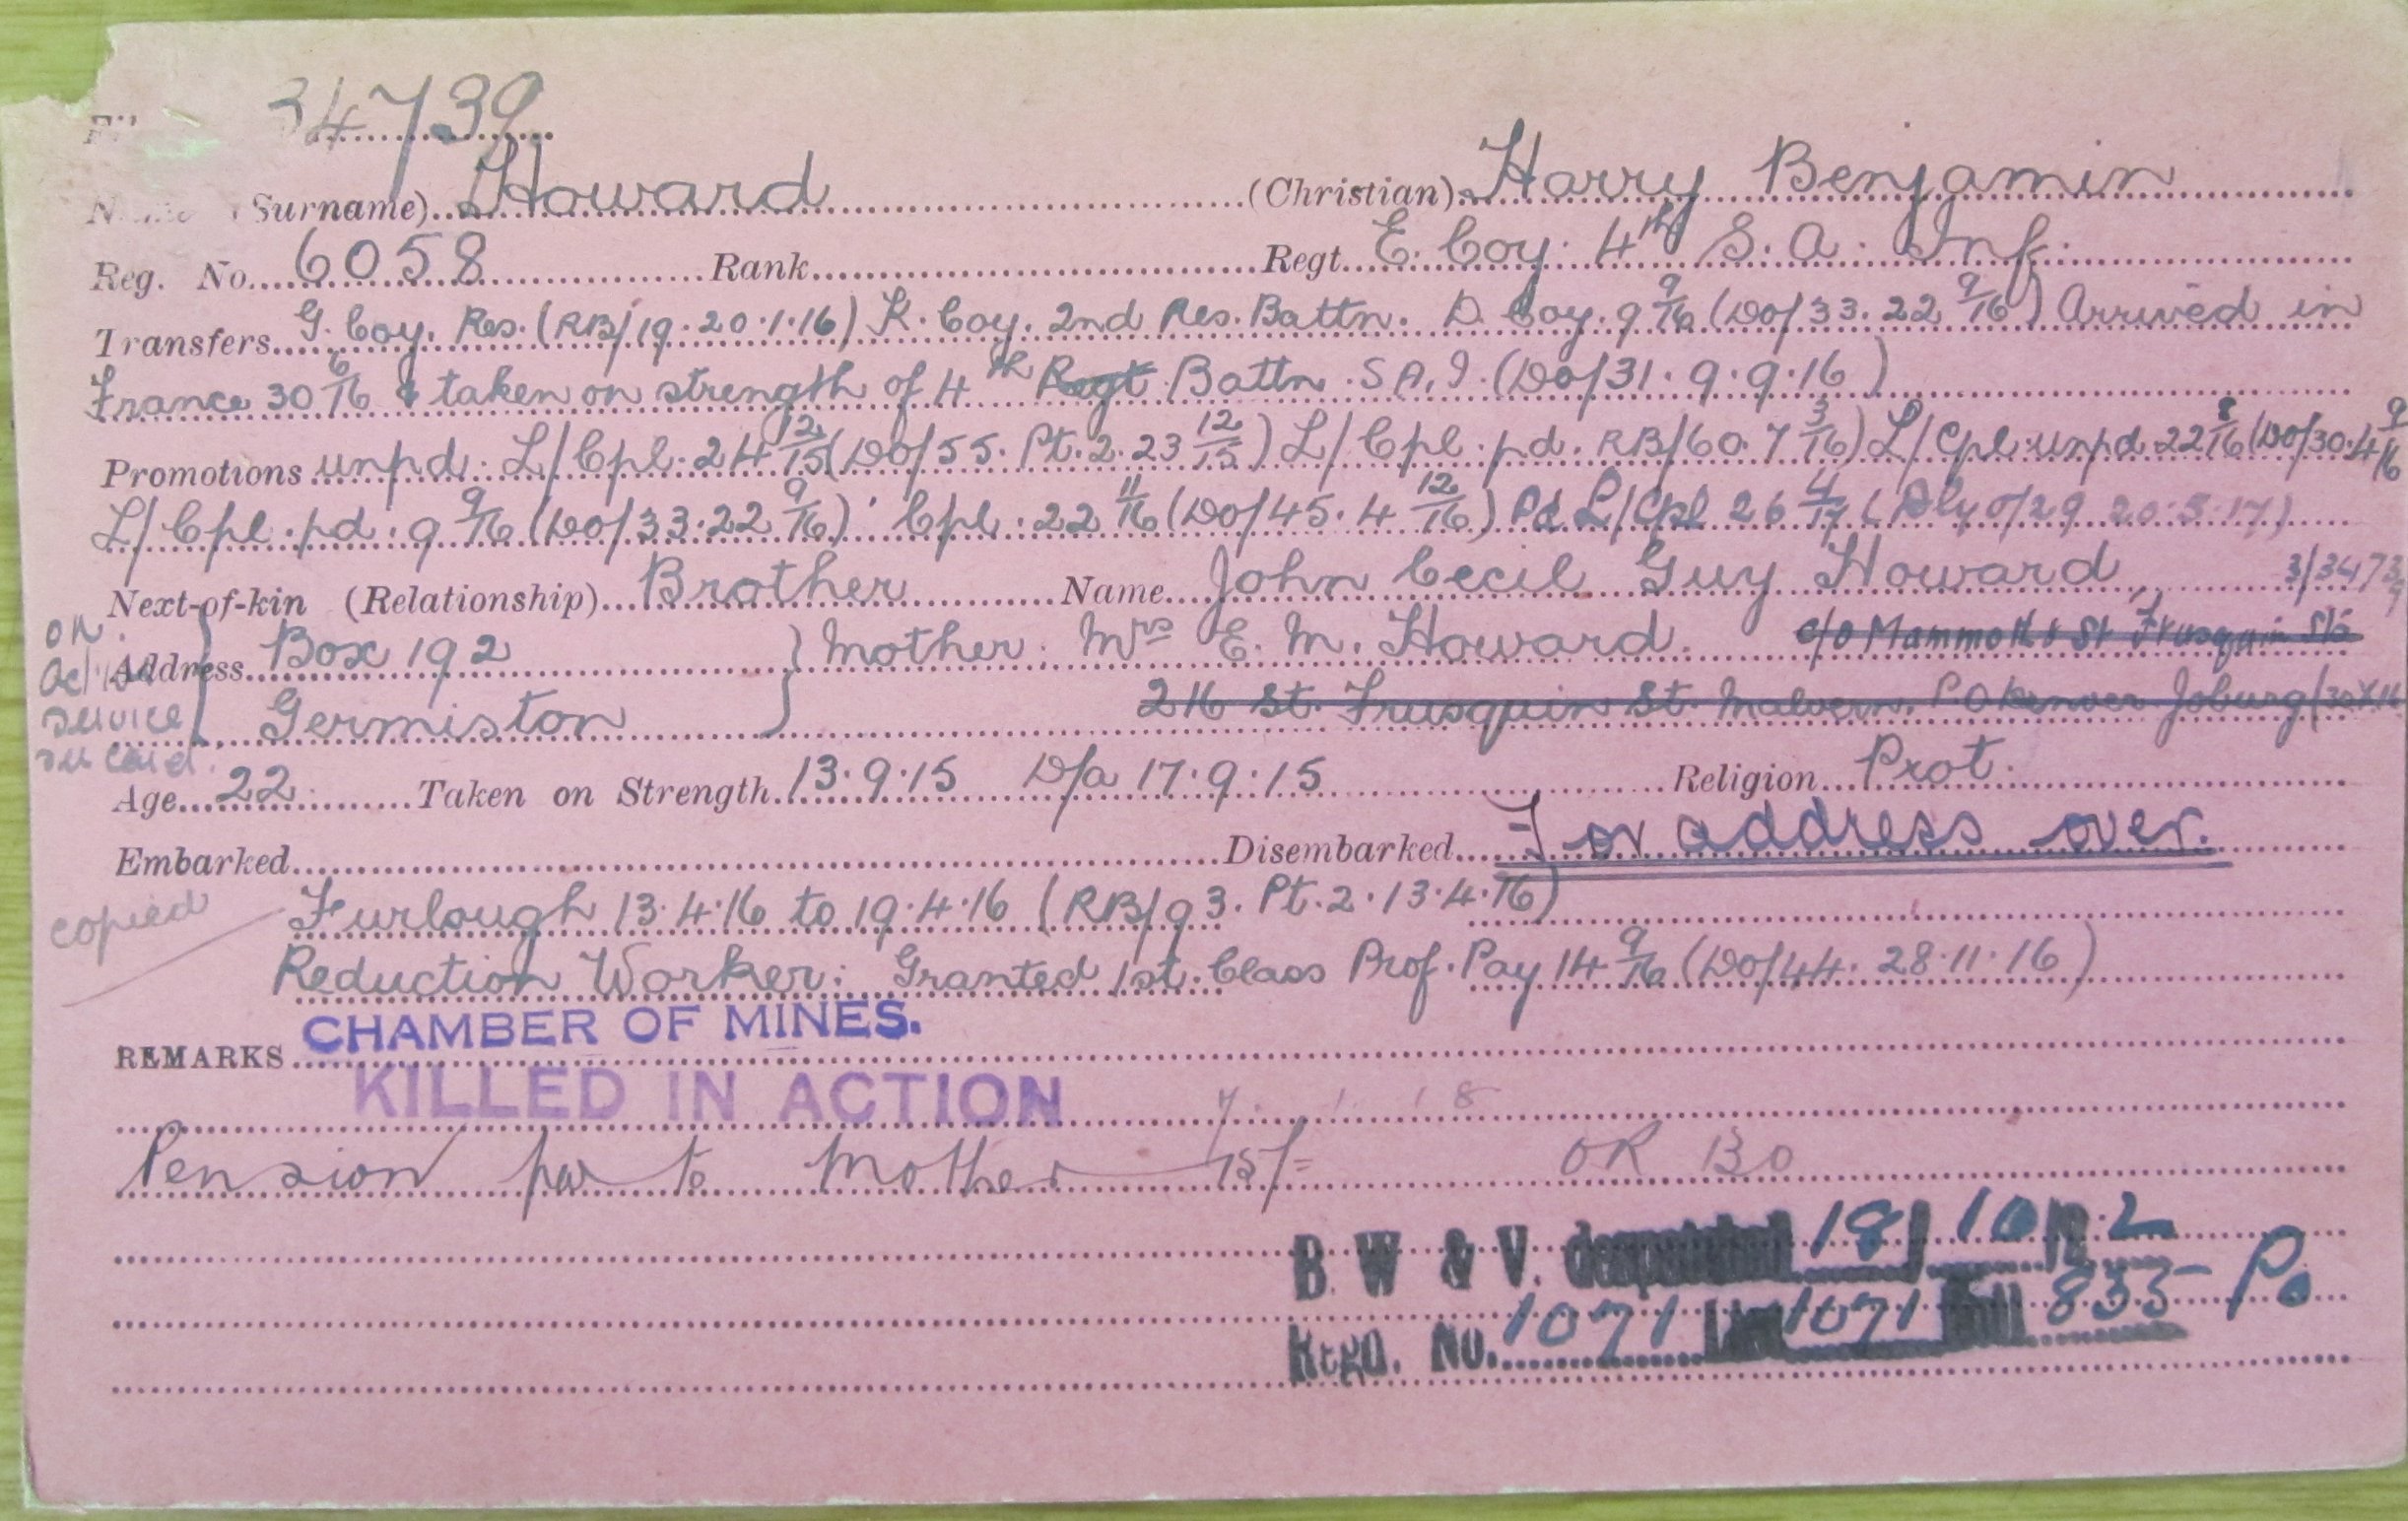 34739
(Surname) Howard (Christian) Harry Benjamin
Reg. No. 6058 Rank Regt. E. Coy. 4th S. A. Inf.
Transfers G. Coy. Res. (RB/19. 20.1.16) K. Coy. 2nd Res. Battn. D. Coy. 9 9/16 (DO/33. 22 9/16) Arrived in
France 30 6/16 & taken on strength of 4th Regt Battn. S A. I. (DO/31. 9.9.16)
Promotions unpd. L/Cpl. 24 12/15 (DO/55. Pt. 2. 23 12/15) L/Cpl. pd. RB/60. 7 3/16) L/Cpl. unpd. 22 8/16 (DO/30. 4 9/16
L/Cpl. pd. 9 9/16 (DO/33. 22 9/16). Cpl. 22 11/16 (DO/45. 4 12/16) Pd L/Cpl 26 4/17 (Dly O/29 20.5.17)
Next-of-kin (Relationship) Brother Name John Cecil Guy Howard 3/34739
Address Box 192 Mother. Mrs E. M. Howard. c/o Mammoth & St Frusquin Sts
on Active service see card.
Germiston 216 St. Frusquin St. Malvern. P.O. Joburg
Age 22 Taken on Strength 13.9.15 D/a 17.9.15 Religion Prot.
Embarked Disembarked For address over.
copied
Furlough 13.4.16 to 19.4.16 (RB/93. Pt. 2. 13.4.16)
Reduction Worker. Granted 1st. Class Prof. Pay 14 9/16 (DO/44. 28.11.16)
REMARKS CHAMBER OF MINES.
KILLED IN ACTION
Pension to Mother 75/= OR 130
B. W & V. despatched 18/10/22
Regd. No. 1071 Line 1071 Roll 835 Po